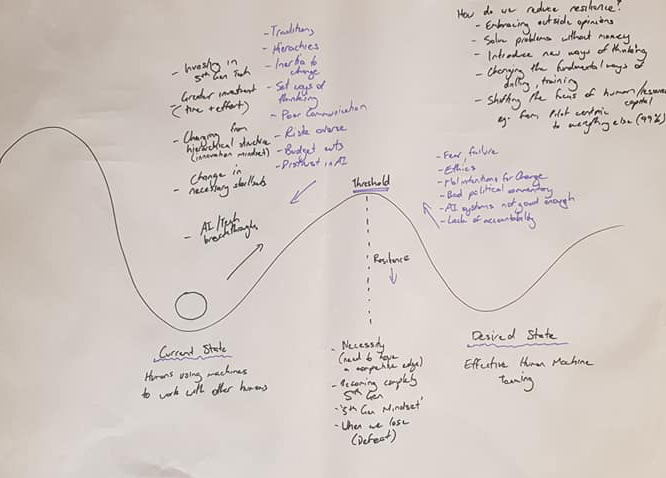 How do we reduce resilience?
- Embracing outside opinions
- Solve problems without money
- Introduce new ways of thinking
- Changing the fundmental ways of
training
- Shifting the focus of human/
capital
eg. from Pilot centric
to everything else (99%)
- Traditions
- Hierachies
- Inertia to
change
- Set ways of
thinking
- Poor Communication
- Risk averse
- Budget cuts
- Distrust in AI
- Investing in
5th Gen Tech
- Greater investment
(time + effort)
- Changing from
hierarchical structure
(innovation mindset)
Change in
- necessary skillsets
- AI/Tech
breakthroughs
- Fear, failure
- Ethics
- Mal intentions for Change
- Bad political commentary
- AI systems not good enough
- Lack of accountability
Threshold
Resilience
Current State
Humans using machines
to work with other humans
- Necessity
(need to have
a competitive edge)
- Becoming completely
5th Gen
- '5th Gen Mindset'
- When we lose
(Defeat)
Desired State
Effective Human Machine
Teaming